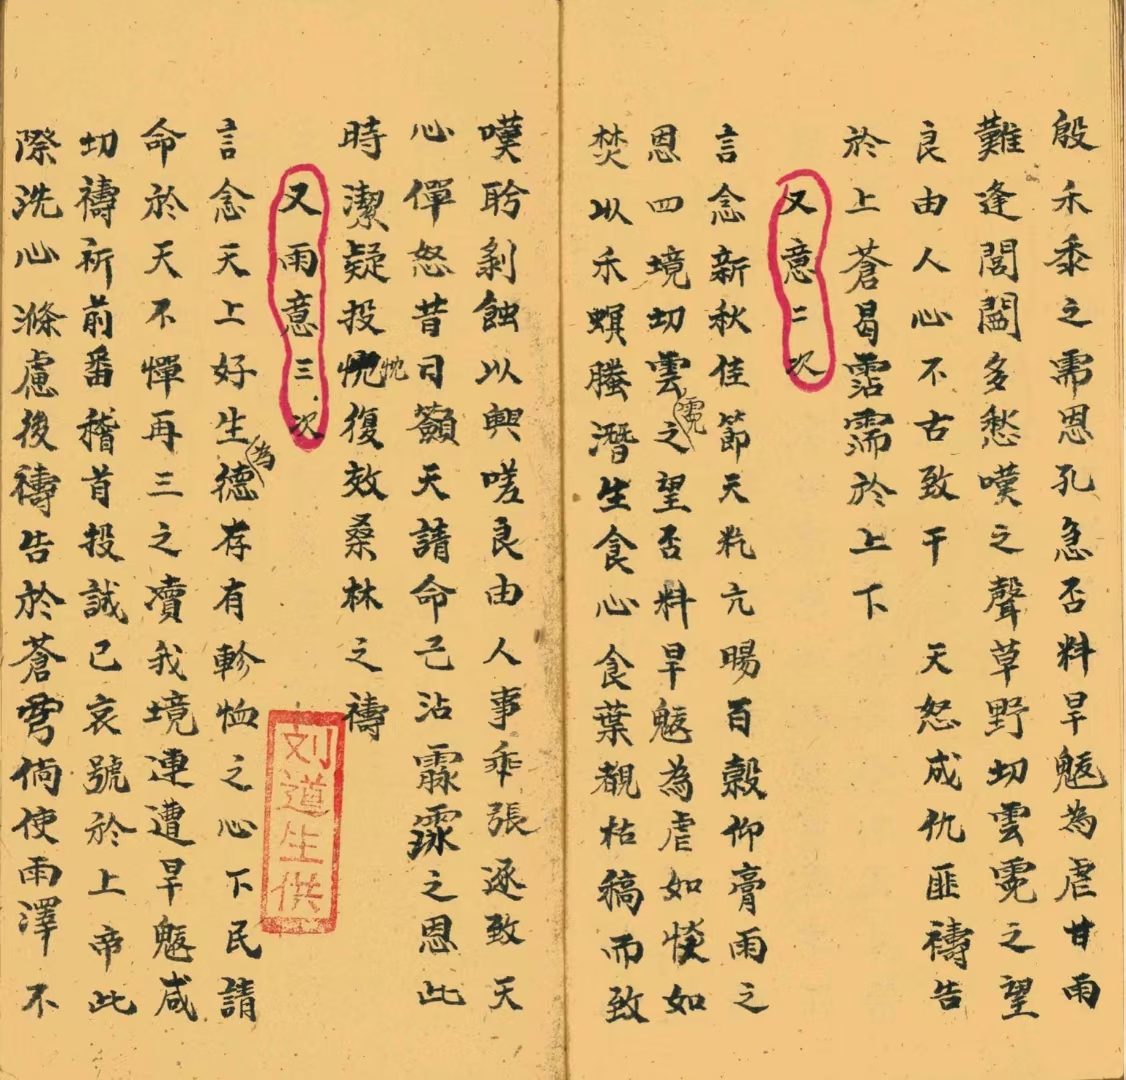 殷禾黍之需恩孔急否料旱魃為虐甘雨
難逢閭闔多愁嘆之聲草野切雲霓之望
良由人心不古致干　天怒成仇匪禱告
於上蒼曷霑濡於上下
又意二次
言念新秋佳節天炁亢暘百穀仰膏雨之
恩四境切雲霓之望否料旱魃為虐如惔如
焚以禾螟螣潛生食心食葉覩枯稿而致
嘆聆剝蝕以興嗟良由人事乖張逐致天
心僤怒昔日籲天請命已沾霡霂之恩此
時潔疑投忱忱復效桑林之禱
又雨意三次
言念天上好生為德存有軫恤之心下民請
命於天不憚再三之凟我境連遭旱魃咸
切禱祈前番稽首投誠已哀號於上帝此
際洗心滌慮後禱告於蒼穹倘使雨澤不
刘道生供